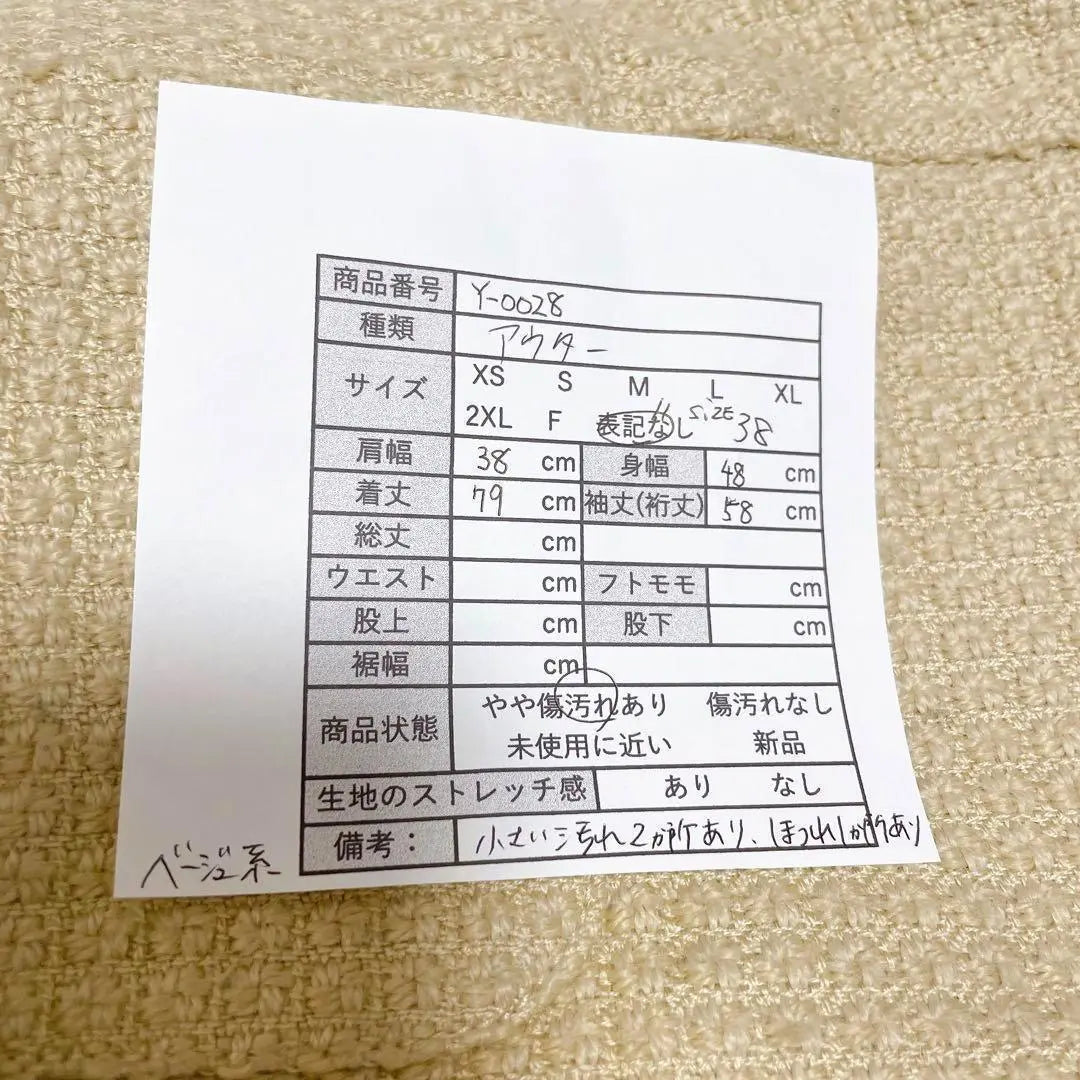 商品番号 Y-0028
種類 アウター
サイズ XS S M L XL
2XL F 表記なし SiZE 38
肩幅 38 cm 身幅 48 cm
着丈 79 cm 袖丈(裄丈) 58 cm
総丈 cm
ウエスト cm フトモモ cm
股上 cm 股下 cm
裾幅 cm
商品状態 やや傷汚れあり 傷汚れなし
未使用に近い 新品
生地のストレッチ感 あり なし
備考： 小さい汚れ2か所あり、ほつれ1か所あり
ベージュ系